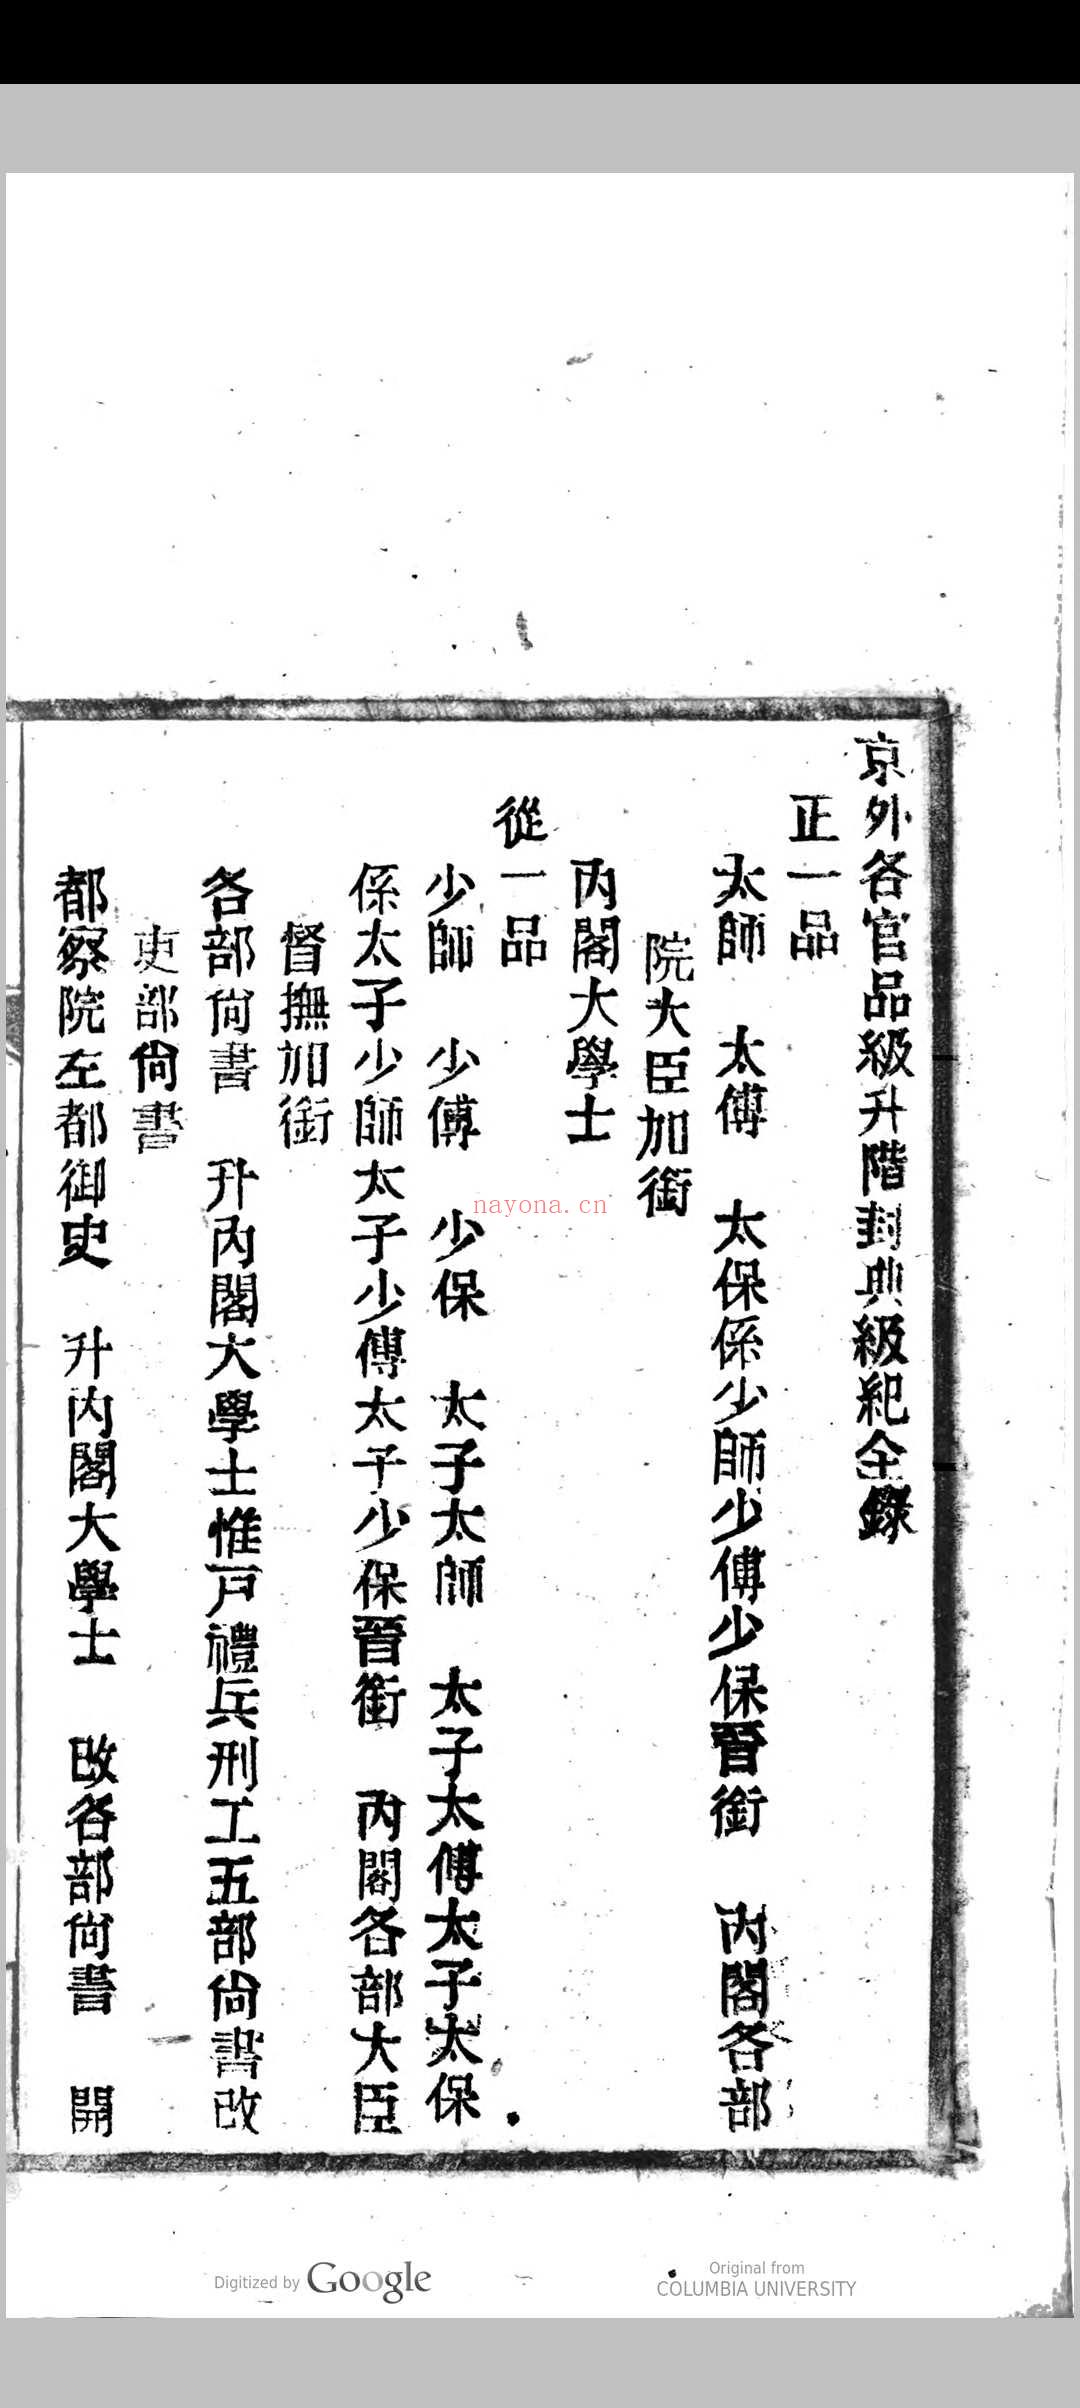 京外各官品級升階封典級紀全錄
正一品
太師　太傅　太保係少師少傅少保晉銜　內閣各部
院大臣加銜
內閣大學士
從一品
少師　少傅　少保　太子太師　太子太傅太子太保
係太子少師太子少傅太子少保晉銜　內閣各部大臣
督撫加銜
各部尙書　升內閣大學士惟戸禮兵刑工五部尙書改
吏部尙書
都察院左都御史　升內閣大學士　改各部尙書　開
nayona.cn
Digitized by Google
Original from
COLUMBIA UNIVERSITY